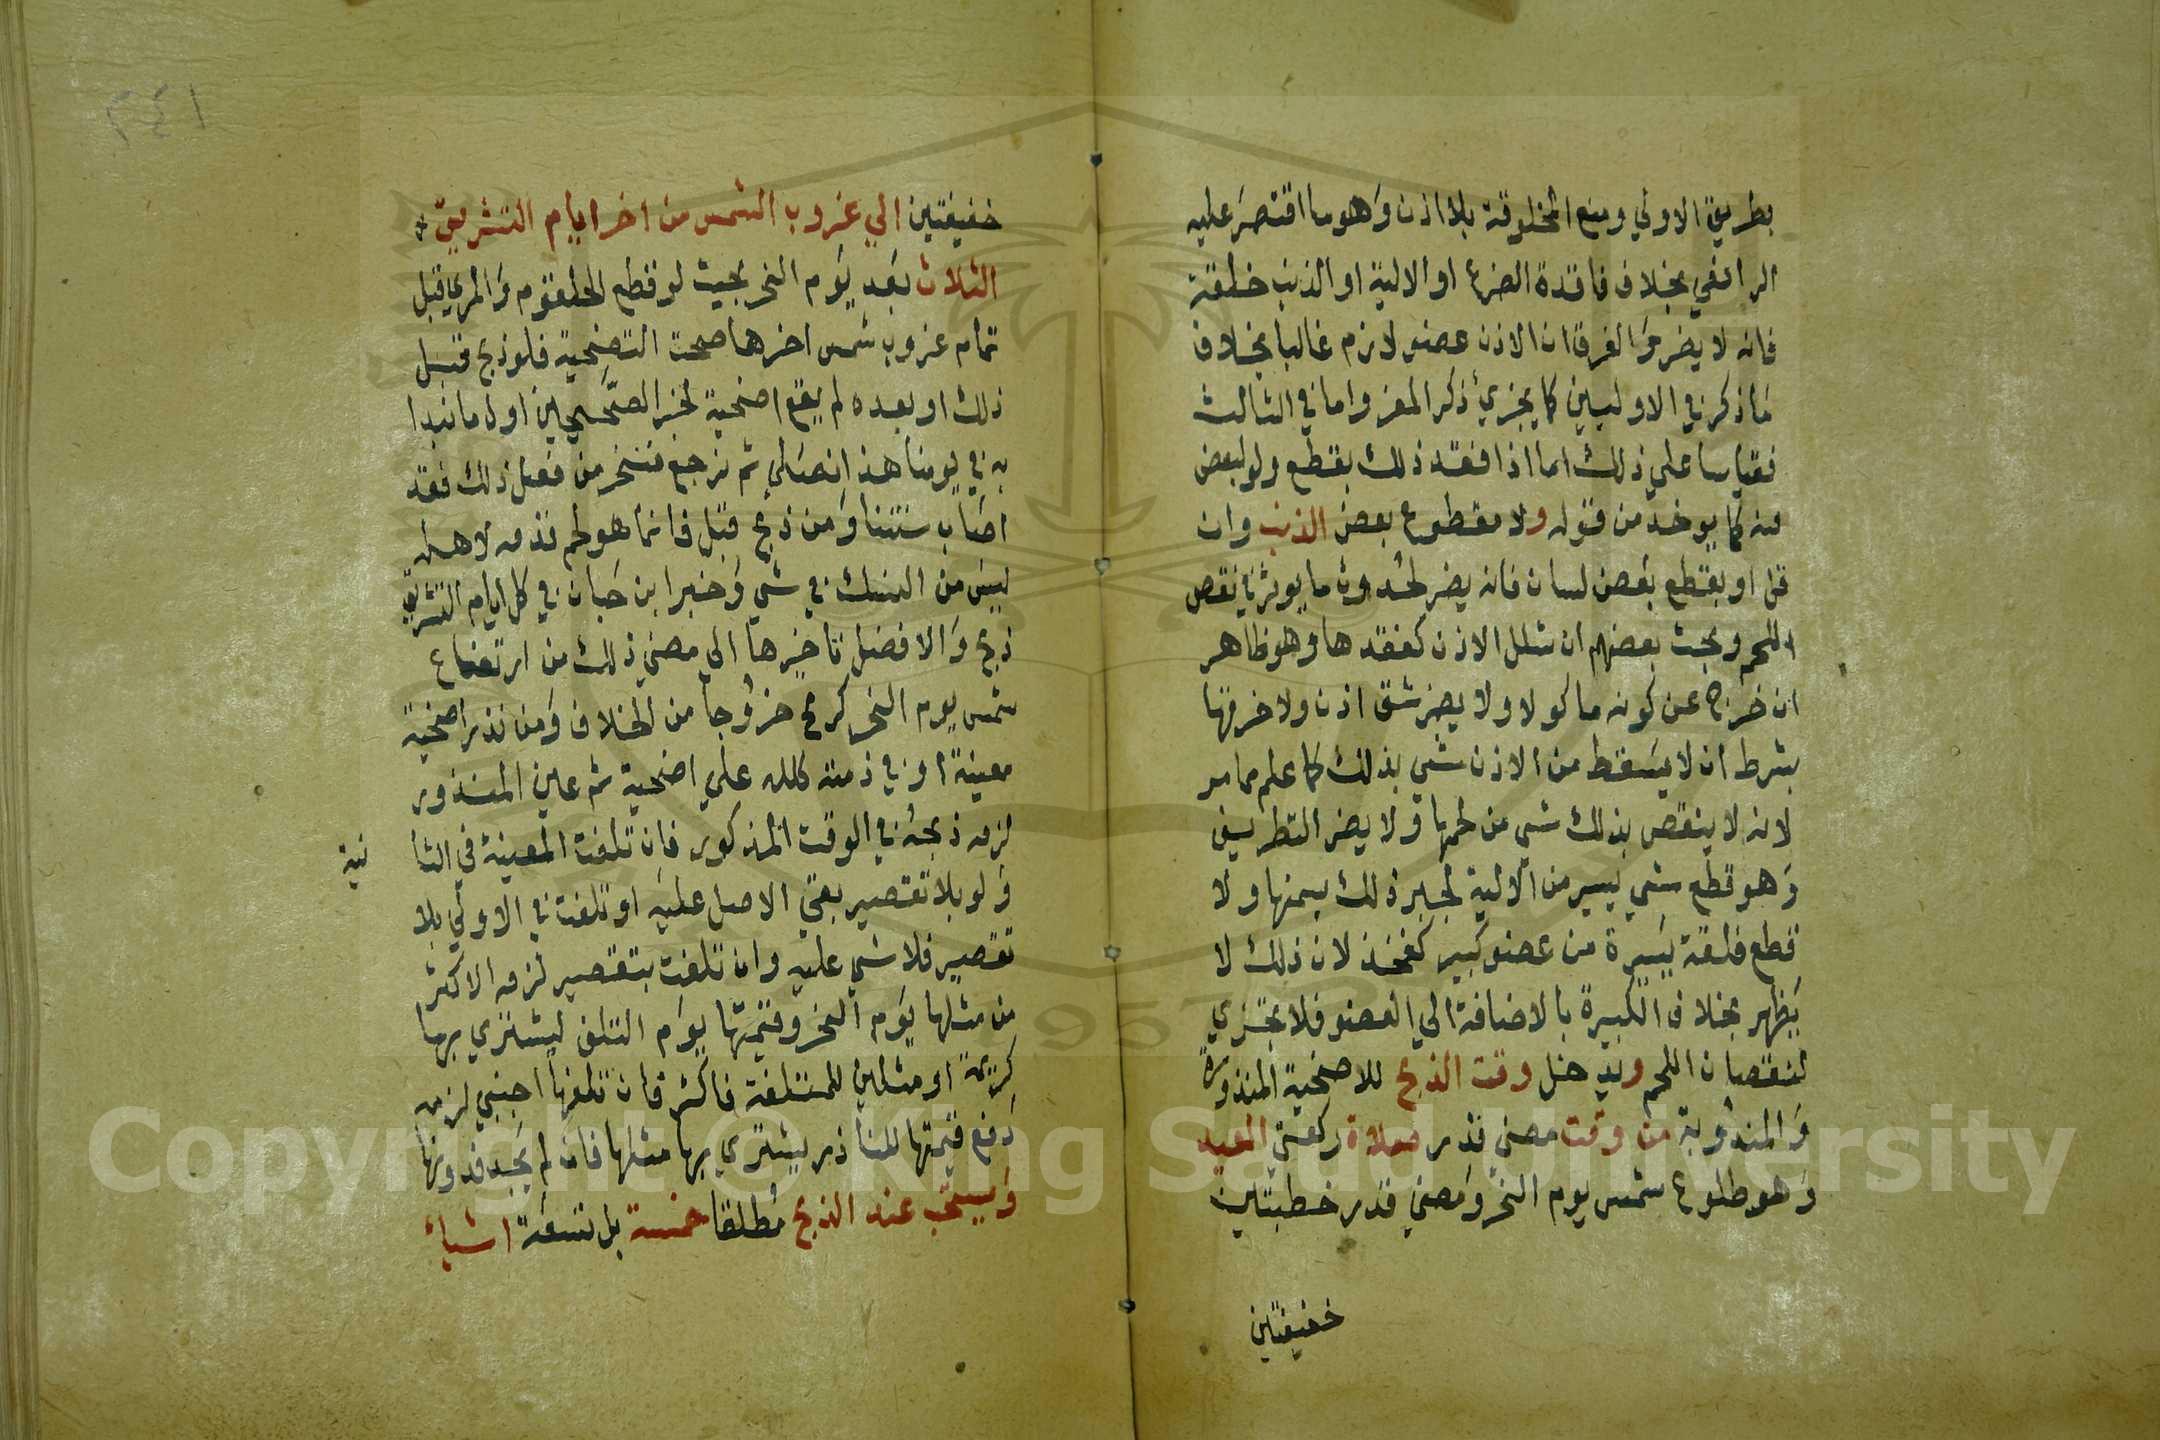 بطريق الاولي ومنع المخلوقة بلا اذن وَهو ما اقتصرَ عليه
الرافعي بخلاف فاقدة الضرع او الالية او الذنب خلقة
فانه لا يضر وَالفرق ان الاذن عضو لازم غالبا بخلاف
مَا ذكر في الاوليين كما يجزيء ذكر المعز واما في الثالث
فقياسا علي ذلك اما اذا فقد ذلك بقطع ولو لبعض
منه كما يوخد من قوله ولا مقطوع بعض الذنب وان
قل او بقطع بعض لسان فانه يضر لحدوث ما يوثر في نقص
اللحم وبحث بعضهم ان شلل الاذن كفقدها وهو ظاهر
ان خرج عن كونه ماكولا ولا يضر شق اذن ولا خرقها
بشرط ان لا يسَقط من الاذن شي بذلك كما علم مما مر
لانه لا ينقص بذلك شي من لحمها وَلا يضر التطريف
وَهو قطع شي يسير من الالية لجبر ذلك بسمنها ولا
قطع فلقة يسَيرة من عضو كبير كفخذ لان ذلك لا
يَظهر بخلاف الكبيرة بالاضافة الي العضو فلا يجزي
لنقصان اللحم ويدخل وقت الذبح للاضحية المنذورة
وَالمندوبة من وقت مضي قدر صلاة ركعتي العيد
وَهو طلوع شمس يوم النحر وَمضي قدر خطبتين
خفيفتين
٢٤١
خفيفتين الي غروب الشمس من اخر ايام التشريق
الثلاث بَعد يَوم النحر بحيث لو قطع الحلقوم وَالمري قبل
تمام غروب شمس اخرها صحت التضحية فلو ذبح قبل
ذلك او بعده لم يقع اضحية لخبر الصَّحيحين اول ما نبدا
به في يومنا هذا نصَلي ثم نرجع فننحر من فعل ذلك فقد
اصَاب سنتنا وَمن ذبح قبل فانما هو لحم قدمه لاهله
ليسَ من النسك في شي وَخبر ابن حَبان في كل ايام التشريق
ذبح وَالافضل تاخيرها الي مضي ذلك من ارتفاع
شمس يوم النحر كرمح خرُوجاً من الخلاف وَمن نذر اضحية
معينةً او في ذمته كلله علي اضحية ثم عين المنذور
لزمه ذبحه في الوقت المذكور فان تلفت المعينة في الثا
نية
وَلو بلا تقصير بقي الاصل عليه او تلفت في الاولي بلا
تقصير فلا شي عليه وان تلفت بتقصير لزمه الاكثر
من مثلها يَوم النحر وقيمتها يوَم التلف ليشتري بها
كريمة او مثلين للمتلفة فاكثر فان تلفها اجنبي لزمه
دَفع قيمتها للناذر يشتري بها مثلها فان لم يَجد فدونها
وَيستحَب عند الذبح مُطلقا خمسة بل تسعَة اشياء
Copyright © King Saud University
1957